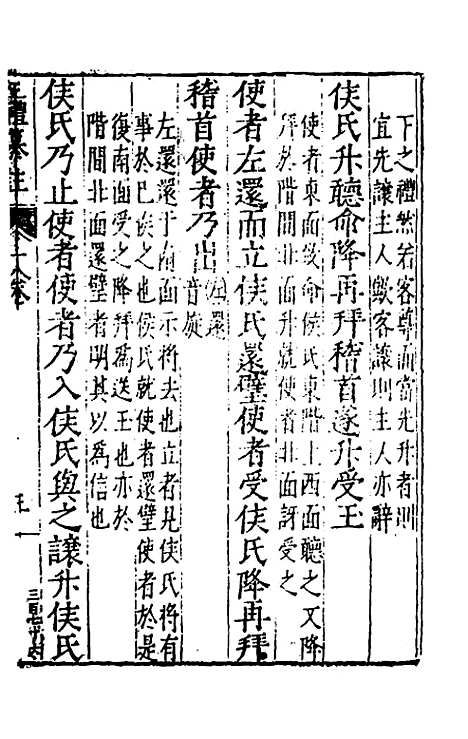 下之禮然若客尊而當先升者則
宜先讓主人敵客讓則主人亦辭
侯氏升聽命降再拜稽首遂升受玉
使者東面致命侯氏東階上西面聽之又降
拜於階間北面升就使者北面訝受之
使者左還而立侯氏還璧使者受侯氏降再拜
稽首使者乃出左還音旋
左還還于南面示將去也立者見侯氏將有
事於已俟之也侯氏就使者還璧使者於是
復南面受之降拜為送玉也亦於
階間北面還璧者明其以為信也
侯氏乃止使者使者乃入侯氏與之讓升侯氏
禮纂註 卷十